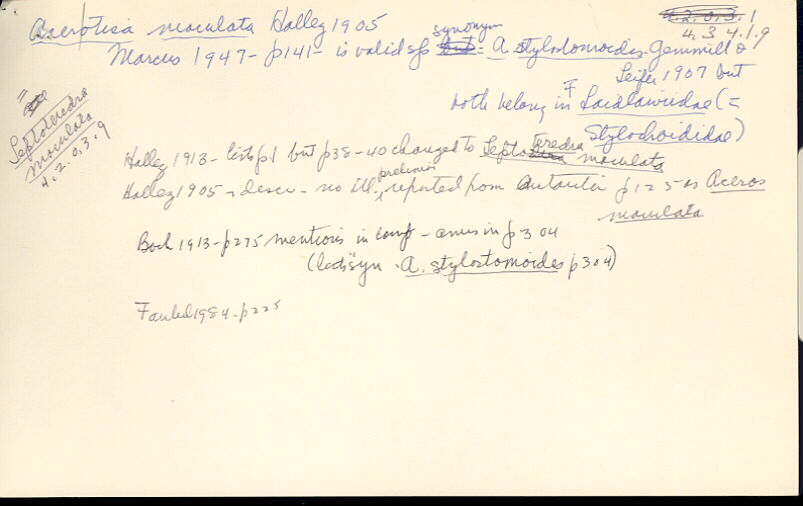 Acerotisa maculata Hallez 1905
4.2.0.3.1
4.3 4.1.9
Marcus 1947 - p141 - is valid sp but synonym = A. stylostomoides Gemmill &
Leiper 1907 but
both belong in F Laidlawiidae (=
Stylochoididae)
=
Leptoteredra
maculata
4.2.0.3.9
Hallez 1913 - lists p1 but p38-40 changed to Leptoteredra maculata
Hallez 1905 - descr - no ill, prelimin reported from Antarctic p125 as Aceros
maculata
Bock 1913 - p275 mentions in comp - anus in p304
(lists syn. A. stylostomoides p304)
Faubel 1984 - p225